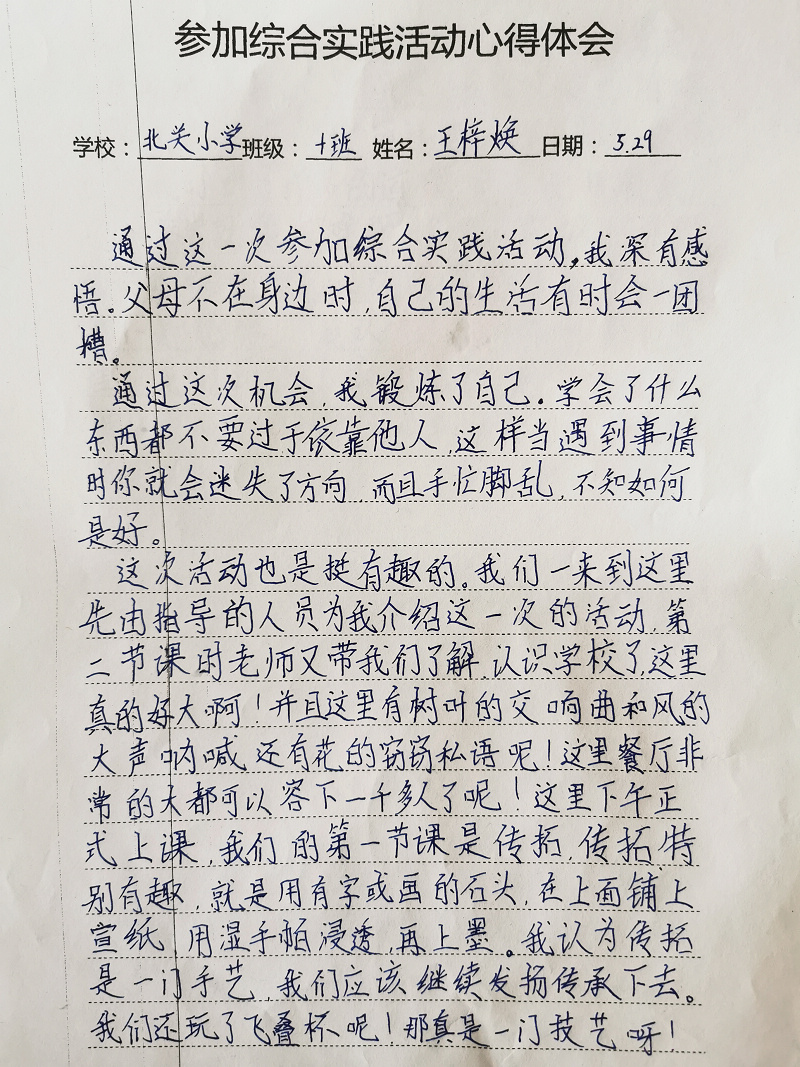 参加综合实践活动心得体会
学校：北关小学班级：十班 姓名：王梓焕日期：5.29
通过这一次参加综合实践活动，我深有感
悟。父母不在身边时，自己的生活有时会一团
糟。
通过这次机会，我锻炼了自己。学会了什么
东西都不要过于依靠他人，这样当遇到事情
时你就会迷失了方向，而且手忙脚乱，不知如何
是好。
这次活动也是挺有趣的。我们一来到这里
先由指导的人员为我介绍这一次的活动，第
二节课时老师又带我们了解，认识学校了，这里
真的好大啊！并且这里有树叶的交响曲和风的
大声呐喊，还有花的窃窃私语呢！这里餐厅非
常的大都可以容下一千多人了呢！这里下午正
式上课，我们的第一节课是传拓，传拓特
别有趣，就是用有字或画的石头，在上面铺上
宣纸，用湿手帕浸透，再上墨。我认为传拓
是一门手艺，我们应该继续发扬传承下去。
我们还玩了飞叠杯呢！那真是一门技艺呀！